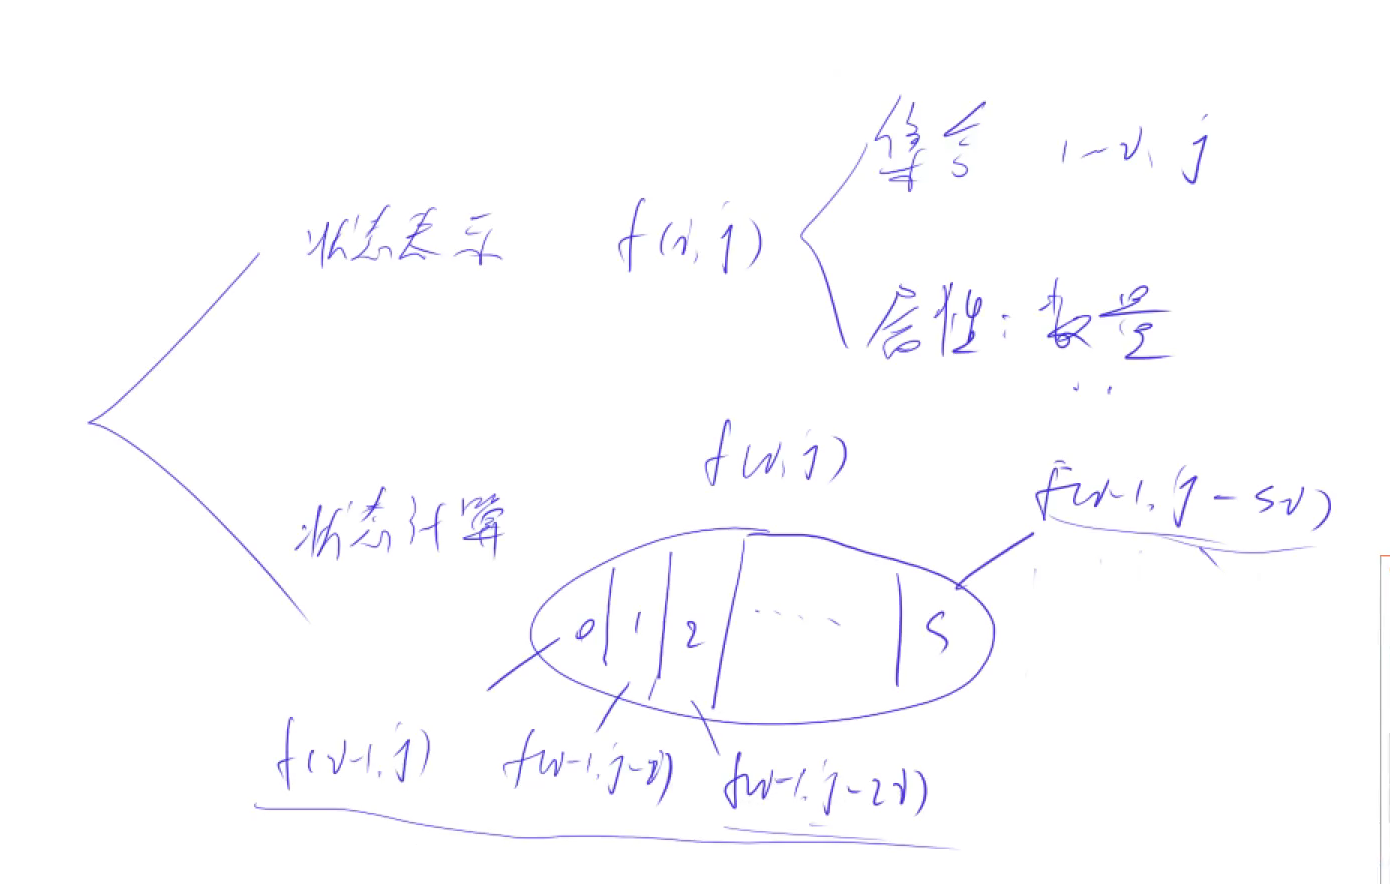 集合 1~i, j
状态表示 f(i, j)
属性：数量
f(i, j)
f(i-1, j-si)
状态计算
0 1 2 ..... S
f(i-1, j) f(i-1, j-i) f(i-1, j-2i)